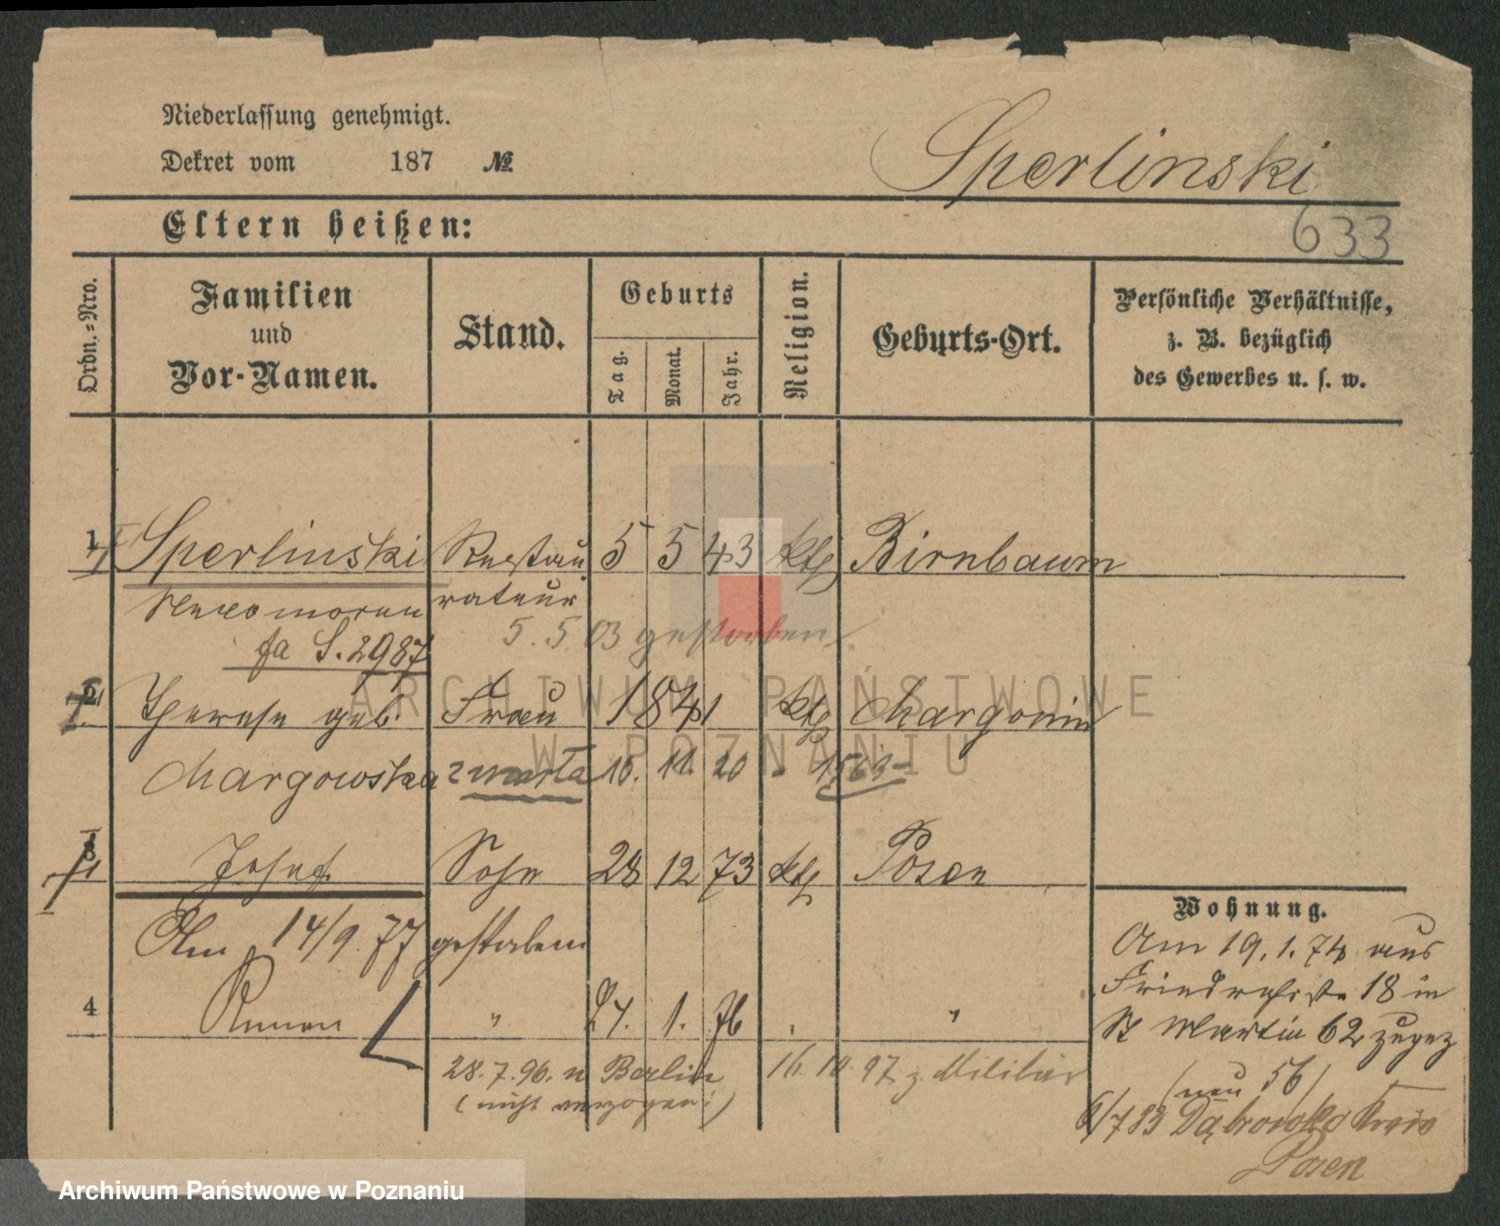 Niederlassung genehmigt.
Dekret vom 187 №
Sperlinski
633
Eltern heißen:
Ordn.-Nro.
Familien
und
Vor-Namen.
Stand.
Geburts
Tag.
Monat.
Jahr.
Religion.
Geburts-Ort.
Persönliche Verhältnisse,
z. B. bezüglich
des Gewerbes u. s. w.
1 Sperlinski Restau 5 5 43 kth Birnbaum
rateur
fa S. 2987
5. 5. 03 gestorben
2 Therese geb. Frau 1841 kth Margonin
Margowska zmarła 10. 11. 20
3 Josef Sohn 28 12 73 kth Posen
Am 14/9. 77 gestorben
4 Roman " 27. 1. 76 "
28. 7. 96. n Berlin
(nicht verzogen!)
16. 10. 97 z. Militär
Wohnung.
Am 19. 1. 74 aus
18 in
St Martin 62 zugez
(neu 56)
6/7 83 Dąbrowka Kreis
Posen
ARCHIWUM PAŃSTWOWE
W POZNANIU
Archiwum Państwowe w Poznaniu